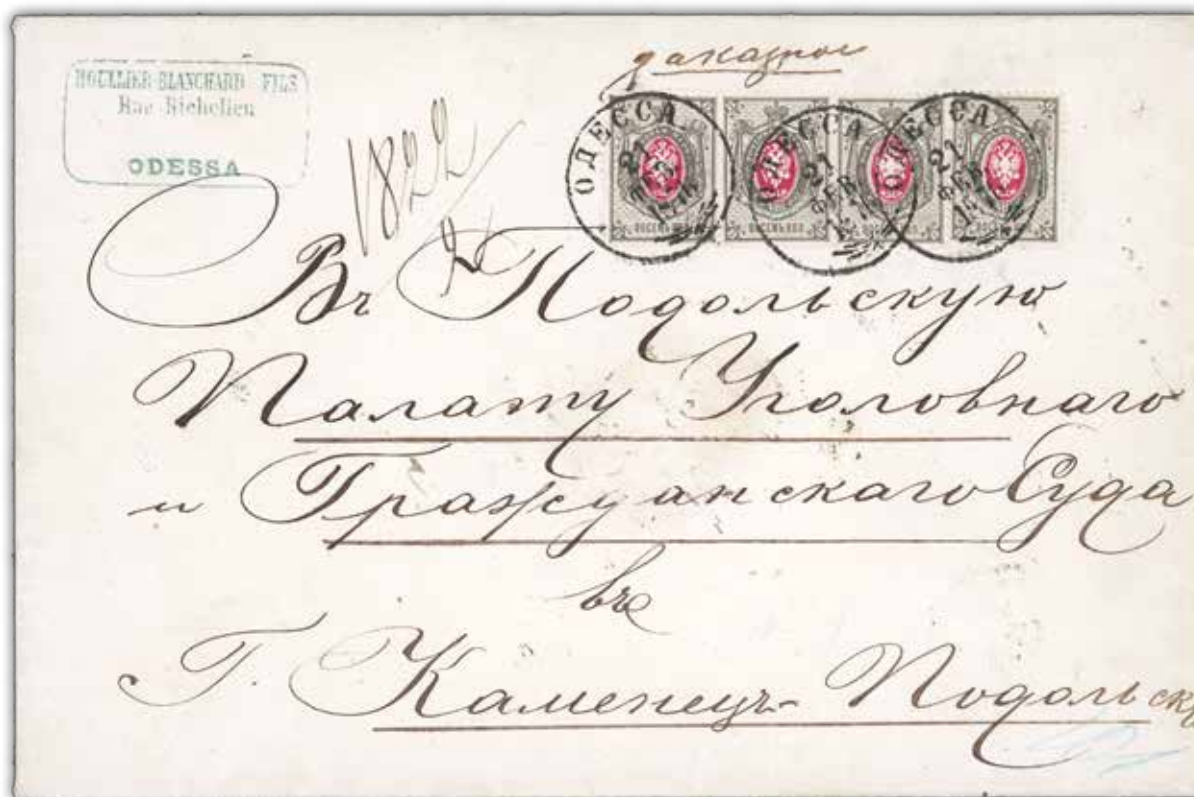 MOULLIER-BLANCHARD FILS
Rue Richelieu
ODESSA
заказное
1822
ОДЕССА
21
ФЕВ
ОДЕССА
21
ФЕВ
ОДЕССА
21
ФЕВ
ВОСЕМЬ КОП
Въ Подольскую
Палату Уголовнаго
и Гражданскаго Суда
въ
Г. Каменецъ-Подольскъ